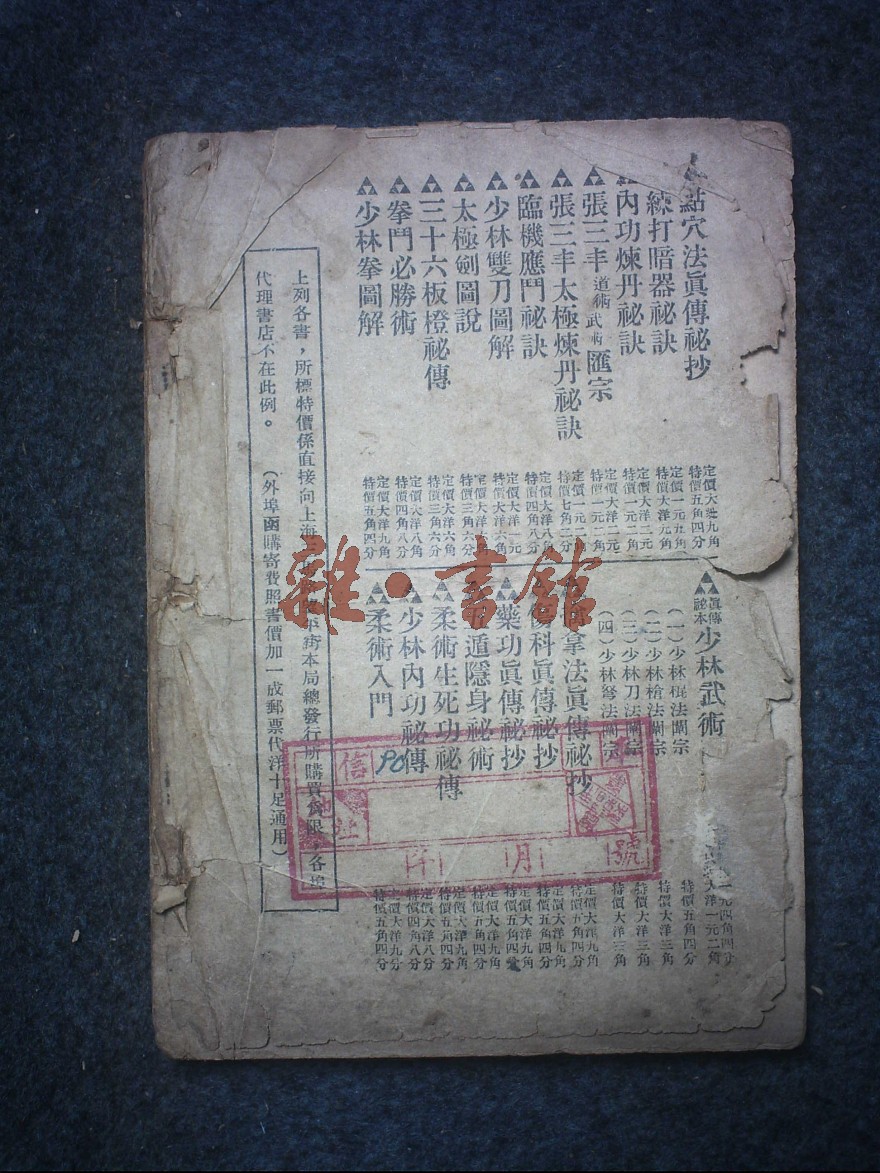 點穴法眞傳祕抄
練打暗器祕訣
內功煉丹祕訣
張三丰道術武術匯宗
張三丰太極煉丹祕訣
臨機應鬥祕訣
少林雙刀圖解
太極劍圖說
三十六板櫈祕傳
拳鬥必勝術
少林拳圖解
定價大洋九角
特價五角四分
定價一元五角
特價大洋九角
定價大洋二元
特價一元二角
定價大洋二元
特價一元二角
定價一元二角
特價七角二分
定價大洋八角
特價四角八分
定價大洋一元
特價大洋六角
定價大洋六角
特價三角六分
定價大洋六角
特價三角六分
定價大洋八角
特價四角八分
定價大洋九角
特價五角四分
眞傳祕本少林武術
(一)少林棍法闡宗
(二)少林槍法闡宗
(三)少林刀法闡宗
(四)少林弩法闡宗
拿法眞傳祕抄
傷科眞傳祕抄
藥功眞傳祕抄
遁隱身祕術
柔術生死功祕傳
少林內功祕傳
柔術入門
一元四角四分
大洋一元二角
特價五角四分
特價大洋三角
特價大洋三角
特價大洋三角
定價大洋九角
特價五角四分
定價大洋九角
特價五角四分
定價大洋九角
特價五角四分
定價大洋九角
特價五角四分
定價大洋八分
特價四角八分
定價大洋九分
特價五角四分
上列各書，所標特價係直接向上海 街本局總發行所購買爲限，各埠
代理書店不在此例。 (外埠函購寄費照書價加一成郵票代洋十足通用)
信
號
月
年
雜·書館